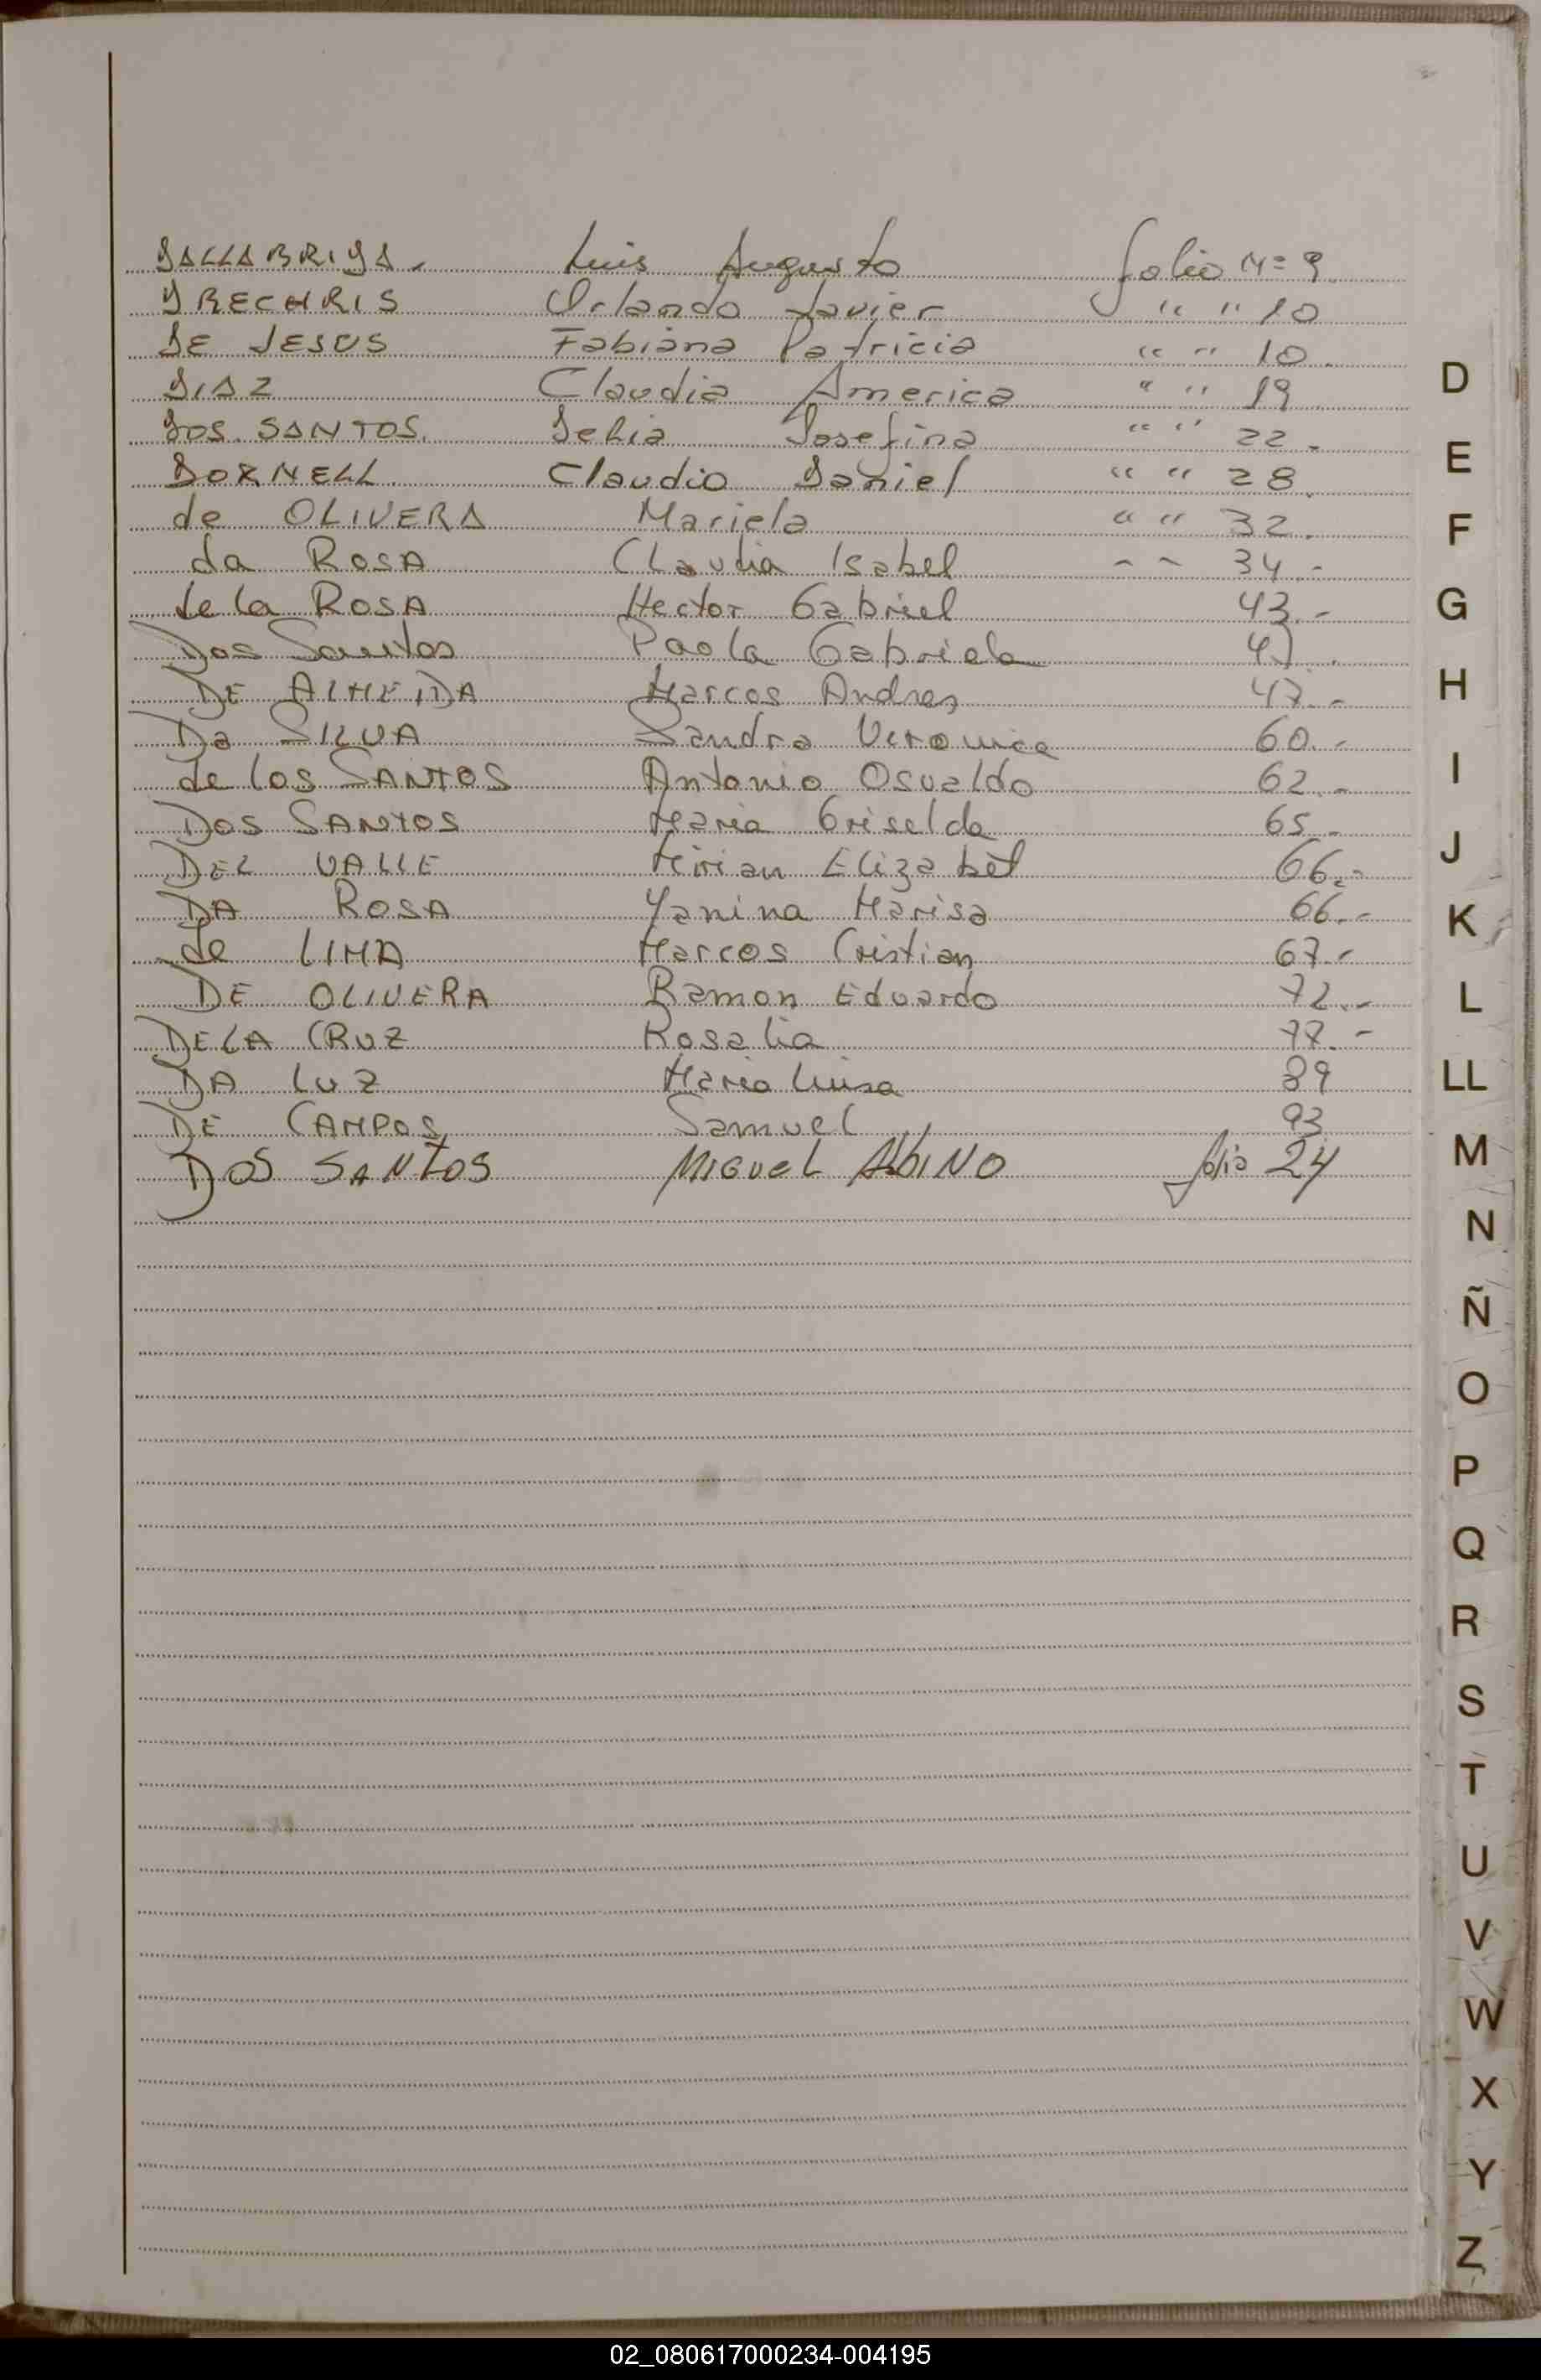 DALLABRIDA. Luis Augusto folio Nº 9.
DRECHRIS Orlando Javier " " 10
DE JESUS Fabiana Patricia " " 10.
DIAZ Claudia America " " 19
DOS SANTOS. Delia Josefina " " 22.
DORNELL. Claudio Daniel " " 28.
de OLIVERA Mariela " " 32.
da ROSA Claudia Isabel " " 34.-
de la ROSA Hector Gabriel 43.-
Dos Santos Paola Gabriela
DE ALMEIDA Marcos Andres 47.-
Da SILVA Sandra Veronica 60.-
de los SANTOS Antonio Osvaldo 62.-
DOS SANTOS Maria Griselda 65.-
DEL VALLE Mirian Elizabet 66.-
DA ROSA Yanina Marisa 66.-
de LIMA Marcos Cristian 67.-
DE OLIVERA Ramon Eduardo 72.-
DE LA CRUZ Rosalia 77.-
DA LUZ Maria Luisa 89
DE CAMPOS Samuel 93
DOS SANTOS MIGUEL ALBINO folio 24
D
E
F
G
H
I
J
K
L
LL
M
N
Ñ
O
P
Q
R
S
T
U
V
W
X
Y
Z
02_080617000234-004195